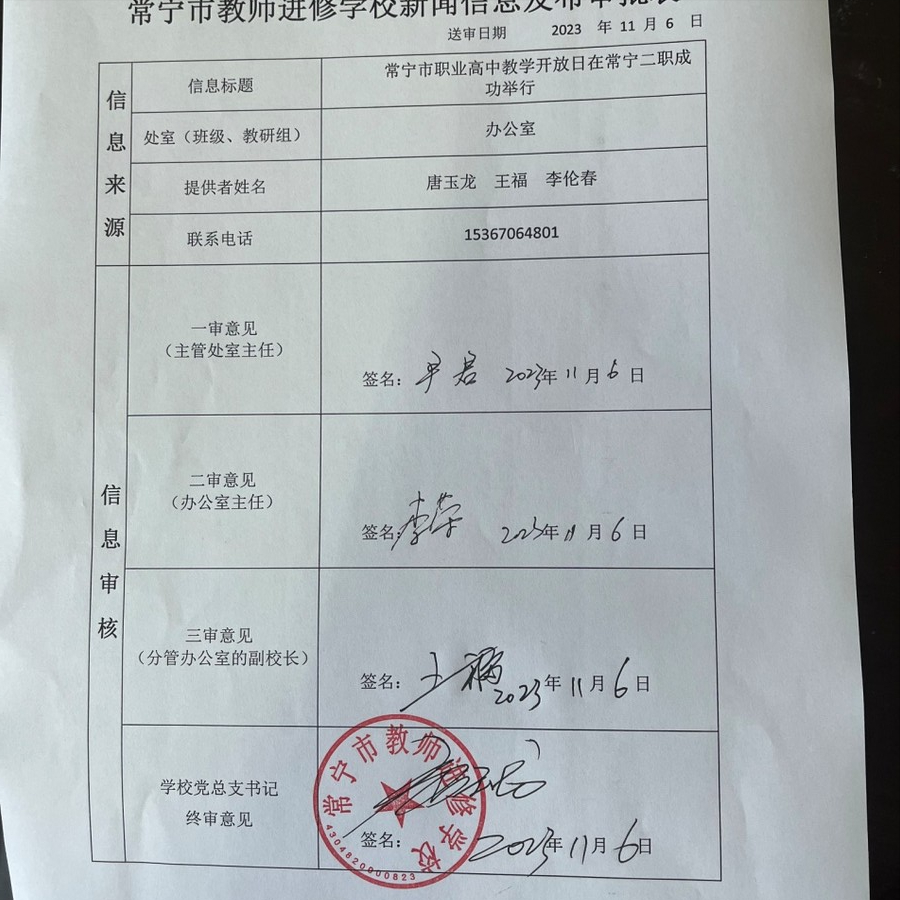 常宁市教师进修学校新闻信息发布审批表
送审日期 2023 年 11 月 6 日
信息来源
信息标题
常宁市职业高中教学开放日在常宁二职成
功举行
处室（班级、教研组）
办公室
提供者姓名
唐玉龙 王福 李伦春
联系电话
15367064801
信息审核
一审意见
（主管处室主任）
签名： 2023年 11 月 6 日
二审意见
（办公室主任）
签名： 李荣 2023年 11 月 6 日
三审意见
（分管办公室的副校长）
签名： 王福 2023年 11 月 6 日
学校党总支书记
终审意见
签名： 2023年 11 月 6 日
常宁市教师进修学校
4304820000823